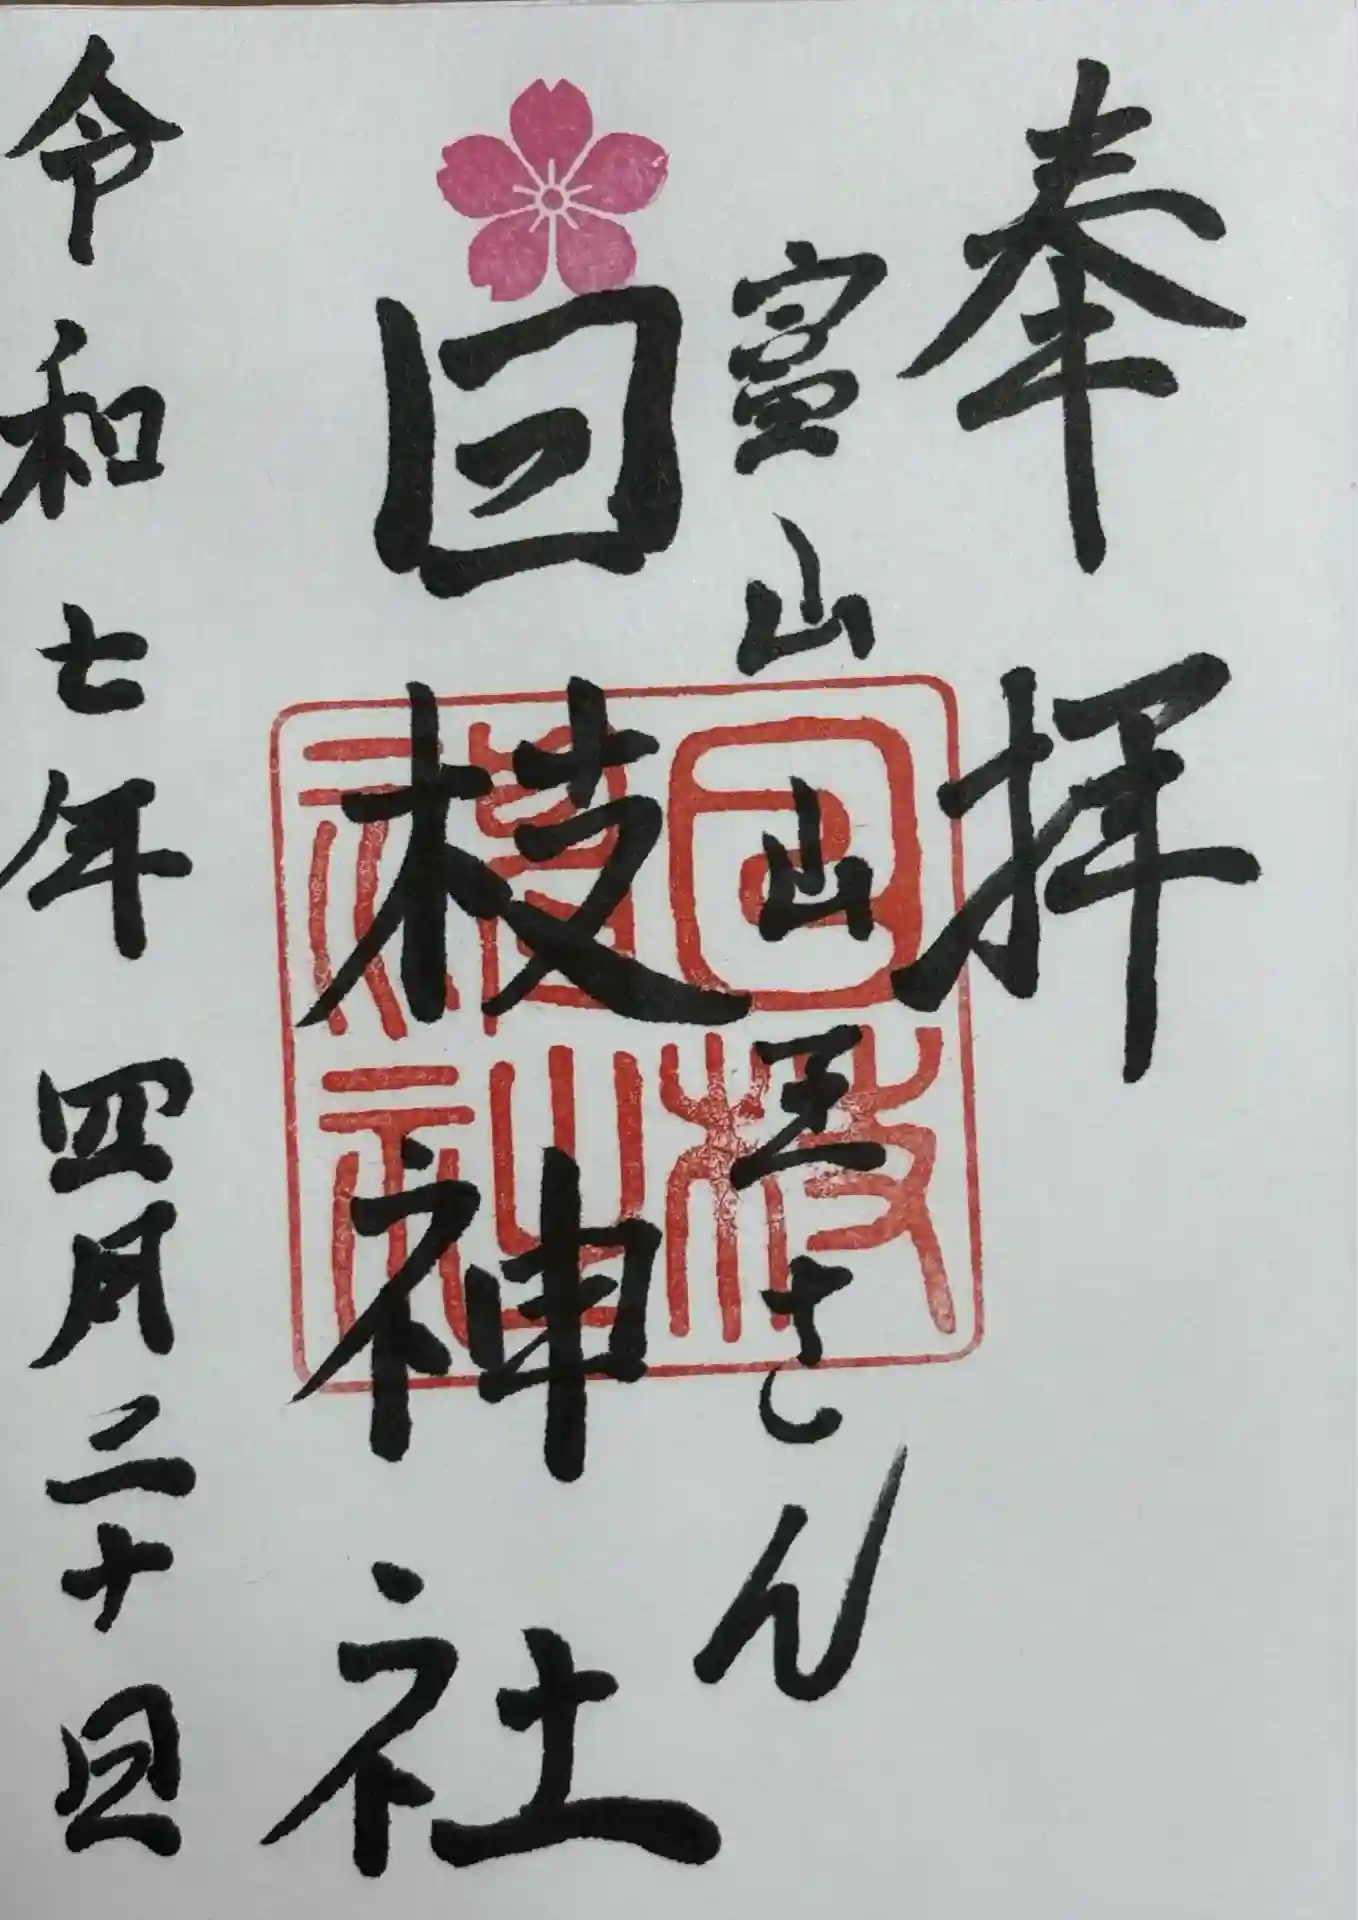 奉拝
富山山王さん
日枝神社
令和七年四月二十日
日枝
神社